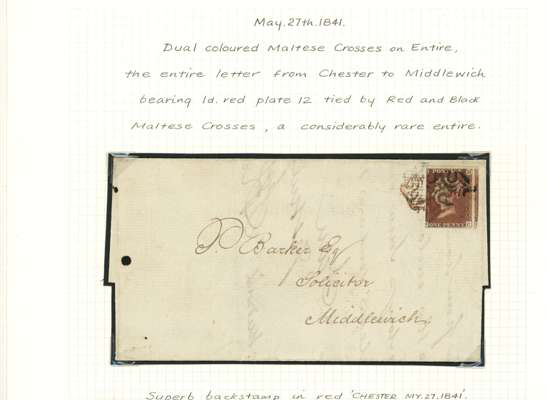 May. 27th. 1841.
Dual coloured Maltese Crosses on Entire,
the entire letter from Chester to Middlewich
bearing 1d. red plate 12 tied by Red and Black
Maltese Crosses, a considerably rare entire.
POST
ONE PENNY
P. Barker Esq
Solicitor
Middlewich
Superb backstamp in red 'CHESTER MY.27.1841'.